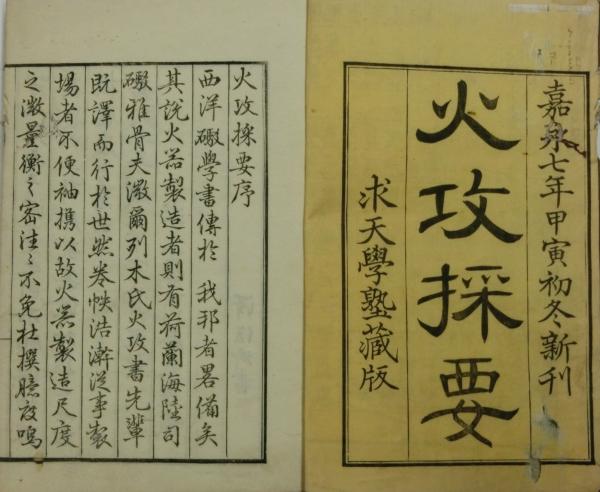 嘉永七年甲寅初冬新刊
火攻採要
求天學塾藏版
火攻採要序
西洋礮學書傳於 我邦者畧備矣
其說火器製造者則有荷蘭海陸司
礮雅骨夫激爾列木氏火攻書先輩
既譯而行於世然卷帙浩澣從事製
場者不便袖携以故火器製造尺度
之激量衡之密往〻不免杜撰臆度嗚